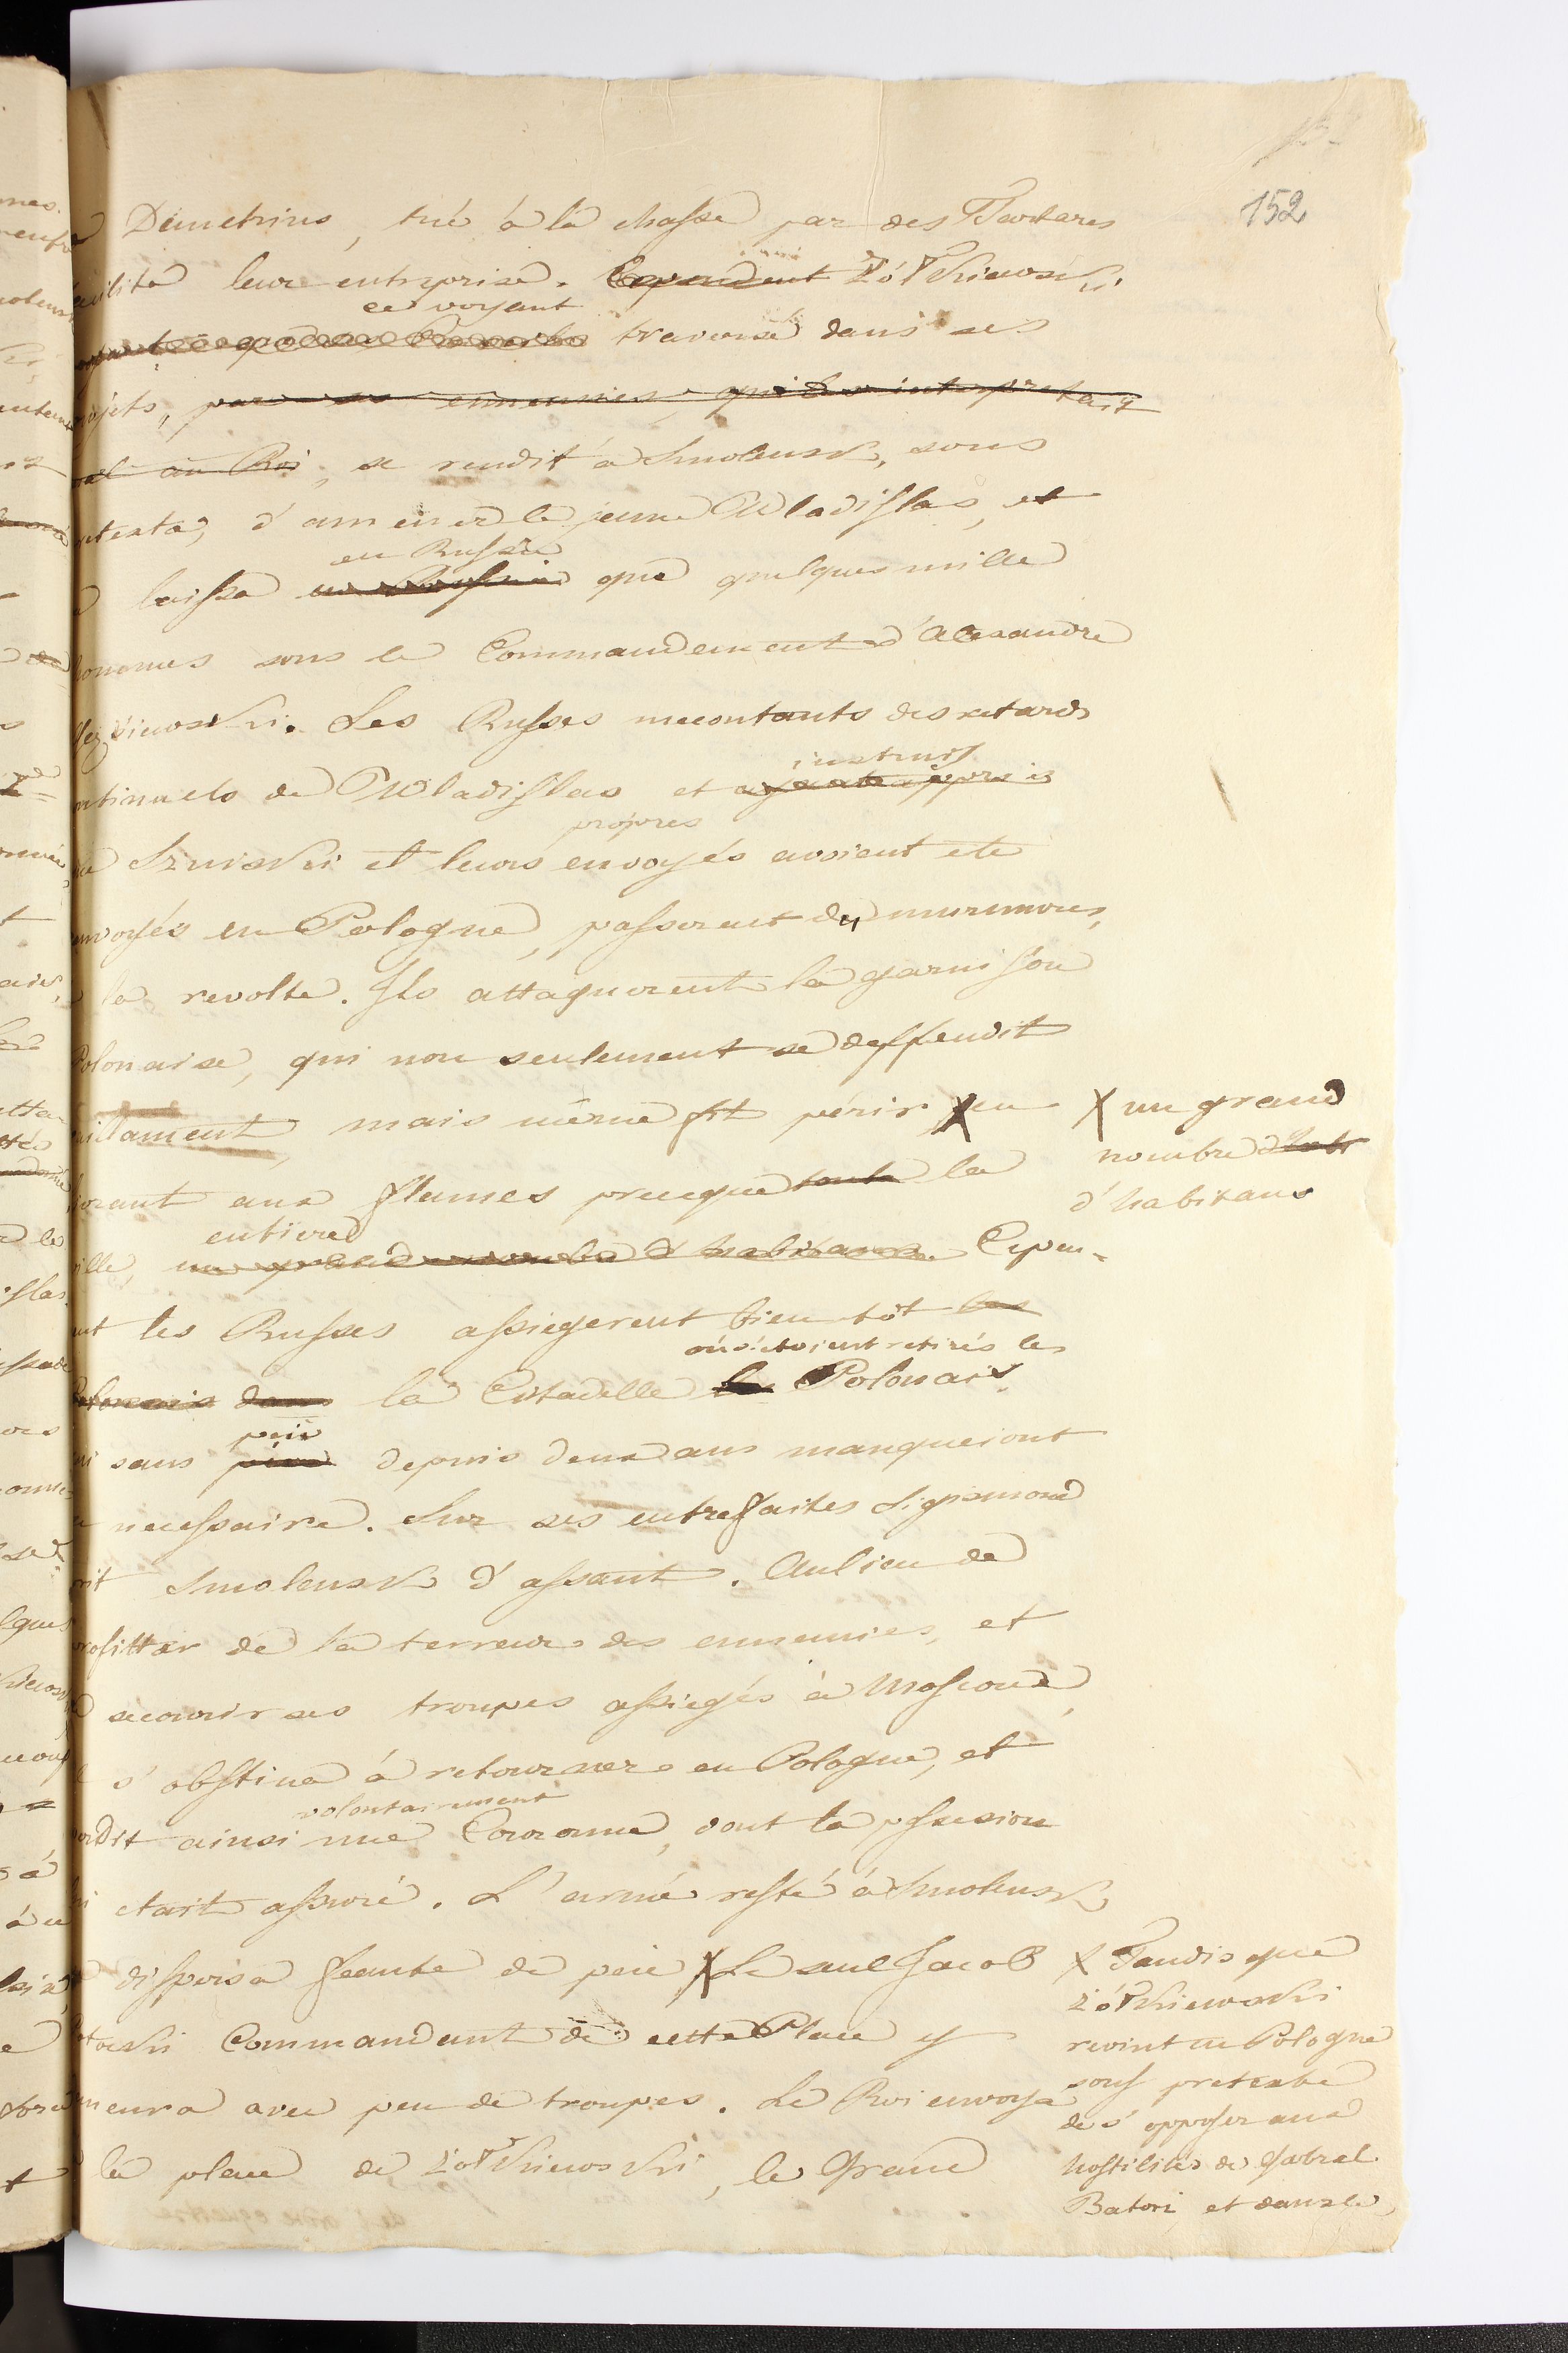 152
Démetrius, tué à la chasse par des Tartares
cilita leur entreprise. Cependant Żółkiewski
ce voyant
traversé dans ses
ojets, par ses ennemies qui les interpretait
mal au Roi, se rendit à Smolensk, sous
retexte, d'amener le jeune Wladislas, et
en Russie
laissa en Russie que quelques mille
hommes sous le Commandement d'Alexandre
Les Russes mecontants des retards
instruis
ontinuels de Wladislas et ayant appris
propres
Szuiski et leurs envoyés avoient été
envoyés en Pologne, passerent du murmures,
à la revolte. Ils attaquerent la garnison
Polonaise, qui non seulement se deffendit
mais même fit périr X en
livrant aux flames presque toute la
entiere
ville, un grand nombre d'habitans. Cepen-
ant les Russes assiegerent bientôt les
où s'etoient retirés les
Polonais dans la Citadelle les Polonais
qui sans paie depuis deux ans manqueiont
necessaire. Sur ses entrefaites Sigismond
prit Smolensk d'assaut. Aulieu de
profitter de la terreur des ennemies, et
secourir ses troupes assiegés à Moscou,
il s'obstina à retourner en Pologne, et
volontairement
perdit ainsi une Couronne, dont la possesion
lui etait assuré. L'armé resté à Smolensk
dispersa feaute de paie X Le seul Jacob
Potocki Commandant de cette Place y
demeura avec peu de troupes. Le Roi envoya
à la place de Żółkiewski, le Grand
X un grand
nombre
d'habitans
X Tandis que
Żółkiewski
revint en Pologne
sous pretexte
de s'opposer aux
hostilités de Gabriel
Batori et dans le